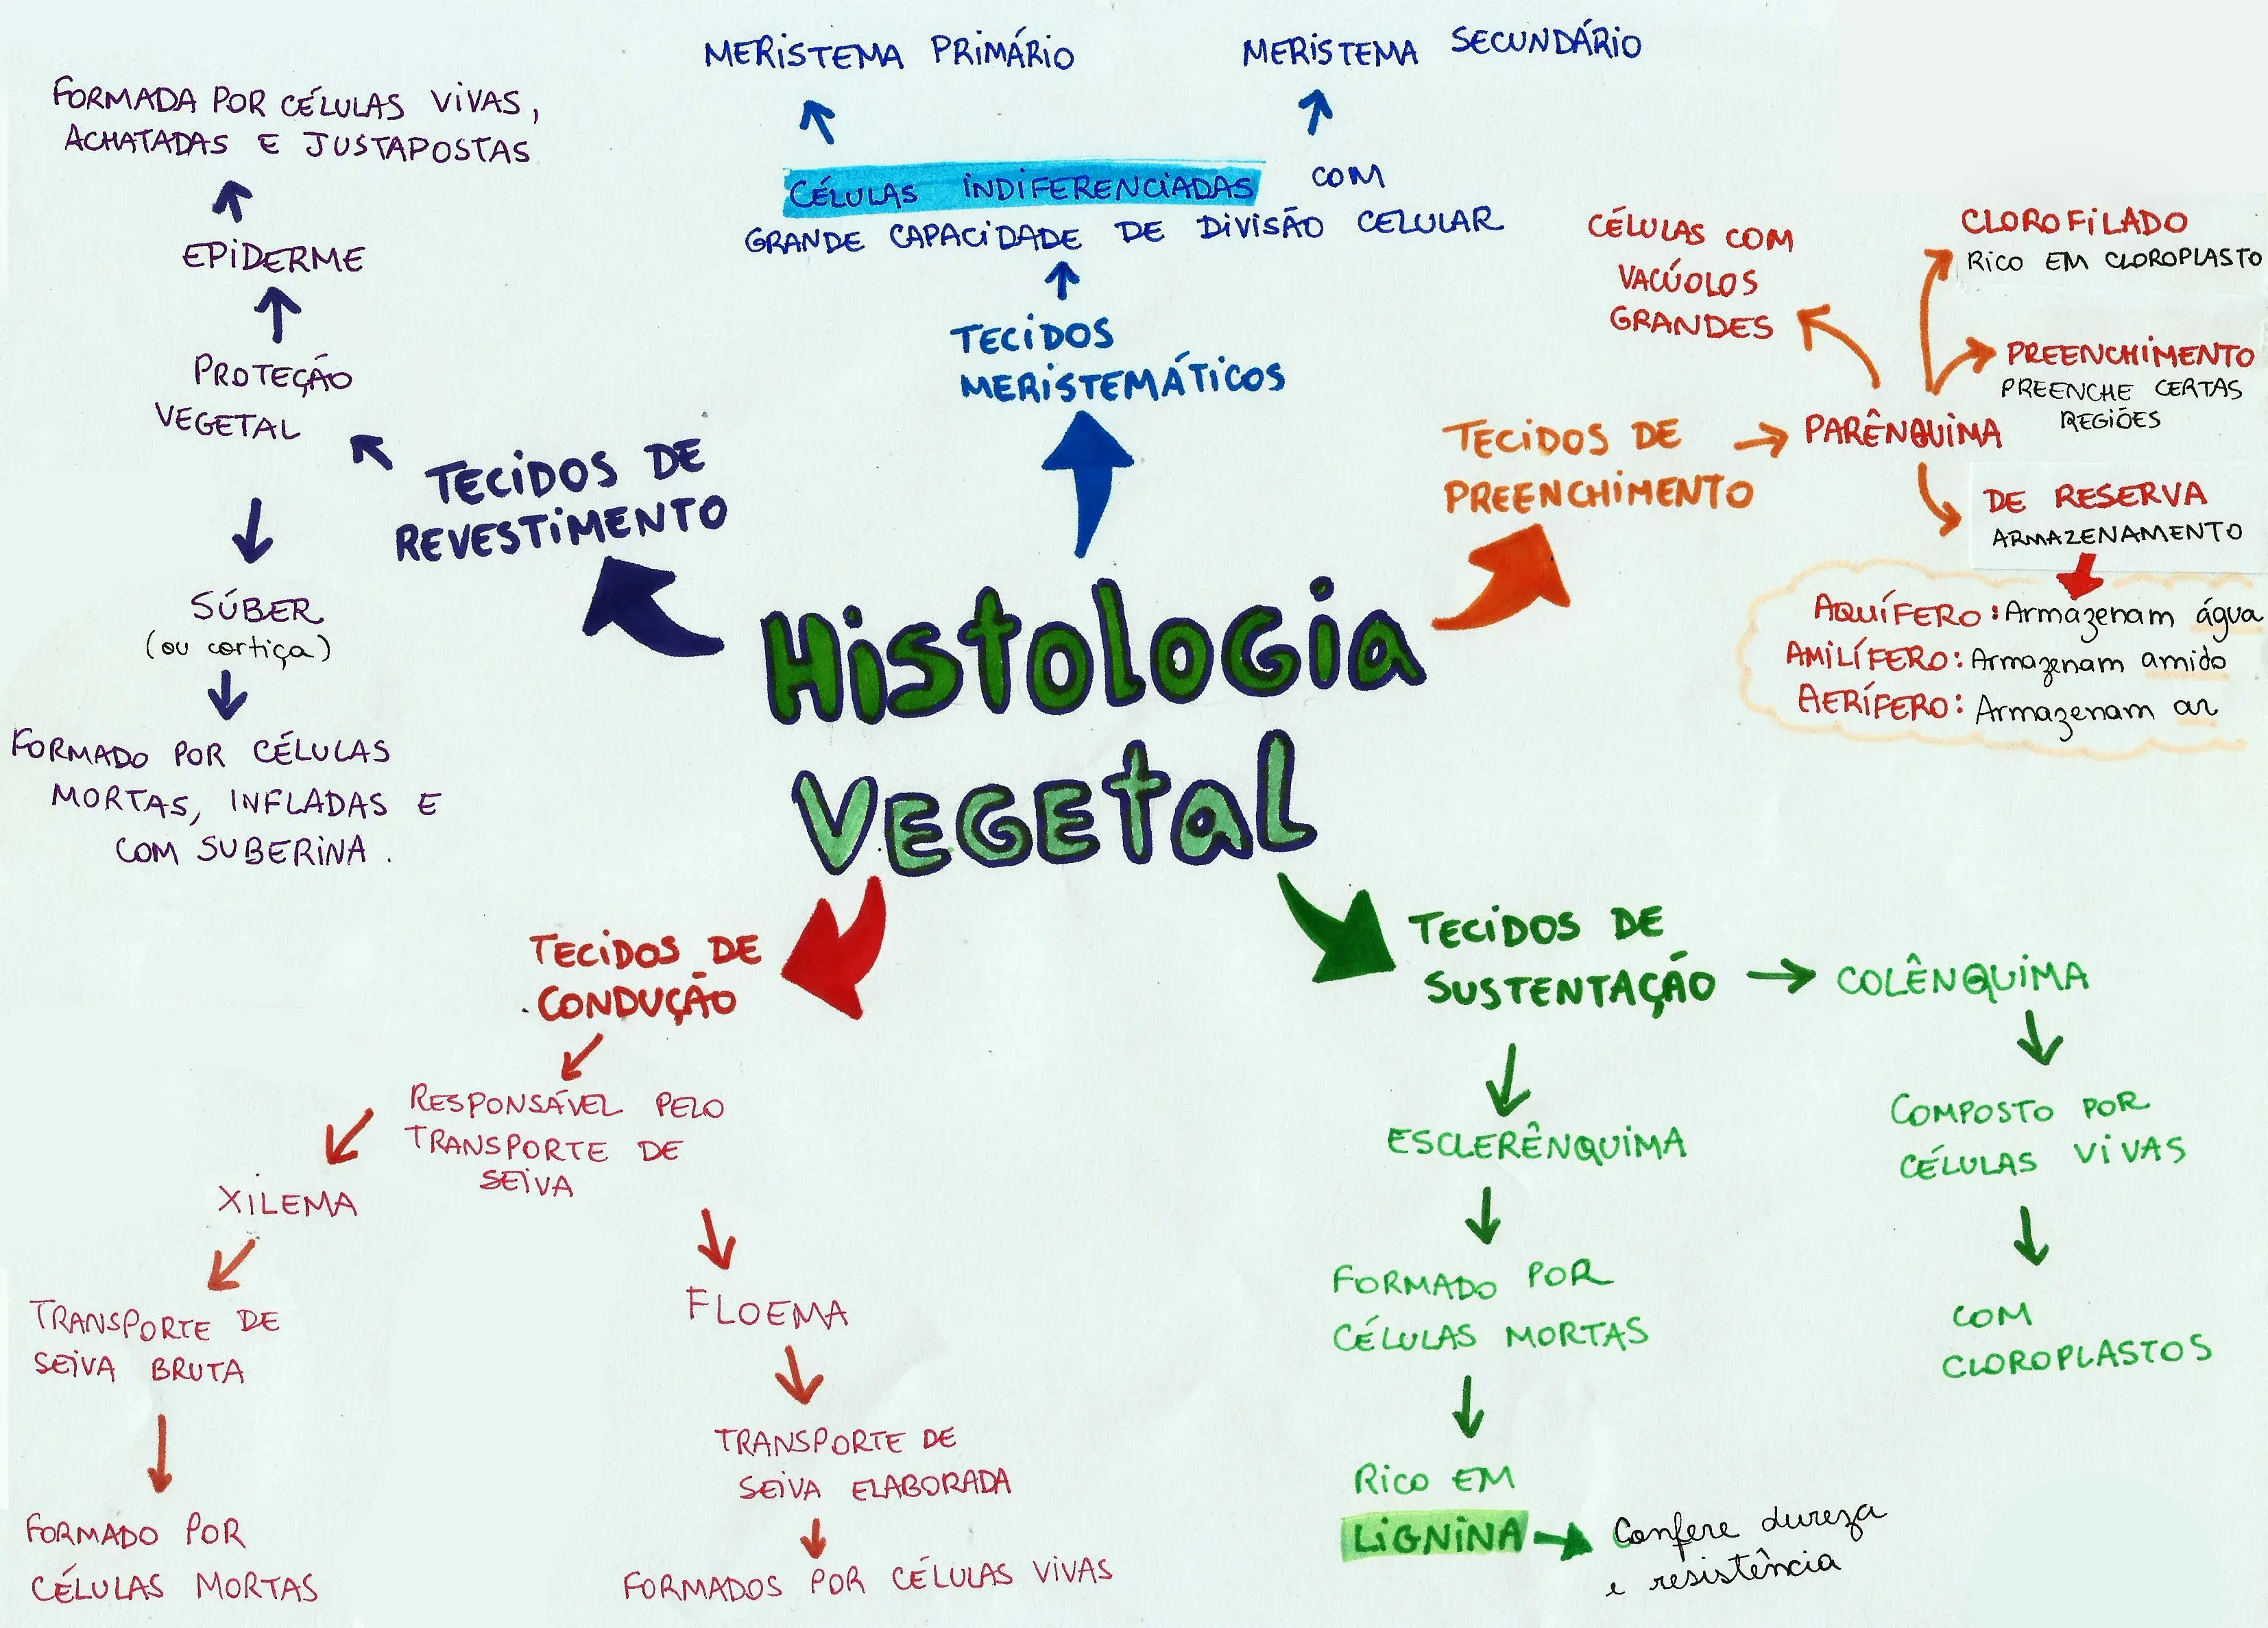 Histologia
Vegetal
TECIDOS DE
REVESTIMENTO
PROTEÇÃO
VEGETAL
EPIDERME
FORMADA POR CÉLULAS VIVAS,
ACHATADAS E JUSTAPOSTAS
SÚBER
(ou cortiça)
FORMADO POR CÉLULAS
MORTAS, INFLADAS E
COM SUBERINA.
TECIDOS
MERISTEMÁTICOS
CÉLULAS INDIFERENCIADAS COM
GRANDE CAPACIDADE DE DIVISÃO CELULAR
MERISTEMA PRIMÁRIO
MERISTEMA SECUNDÁRIO
TECIDOS DE
PREENCHIMENTO
PARÊNQUIMA
CÉLULAS COM
VACÚOLOS
GRANDES
CLOROFILADO
RICO EM CLOROPLASTO
PREENCHIMENTO
PREENCHE CERTAS
REGIÕES
DE RESERVA
ARMAZENAMENTO
AQUÍFERO: Armazenam água
AMILÍFERO: Armazenam amido
AERÍFERO: Armazenam ar
TECIDOS DE
CONDUÇÃO
RESPONSÁVEL PELO
TRANSPORTE DE
SEIVA
XILEMA
TRANSPORTE DE
SEIVA BRUTA
FORMADO POR
CÉLULAS MORTAS
FLOEMA
TRANSPORTE DE
SEIVA ELABORADA
FORMADOS POR CÉLULAS VIVAS
TECIDOS DE
SUSTENTAÇÃO
ESCLERÊNQUIMA
FORMADO POR
CÉLULAS MORTAS
RICO EM
LIGNINA
Confere dureza
e resistência
COLÊNQUIMA
COMPOSTO POR
CÉLULAS VIVAS
COM
CLOROPLASTOS